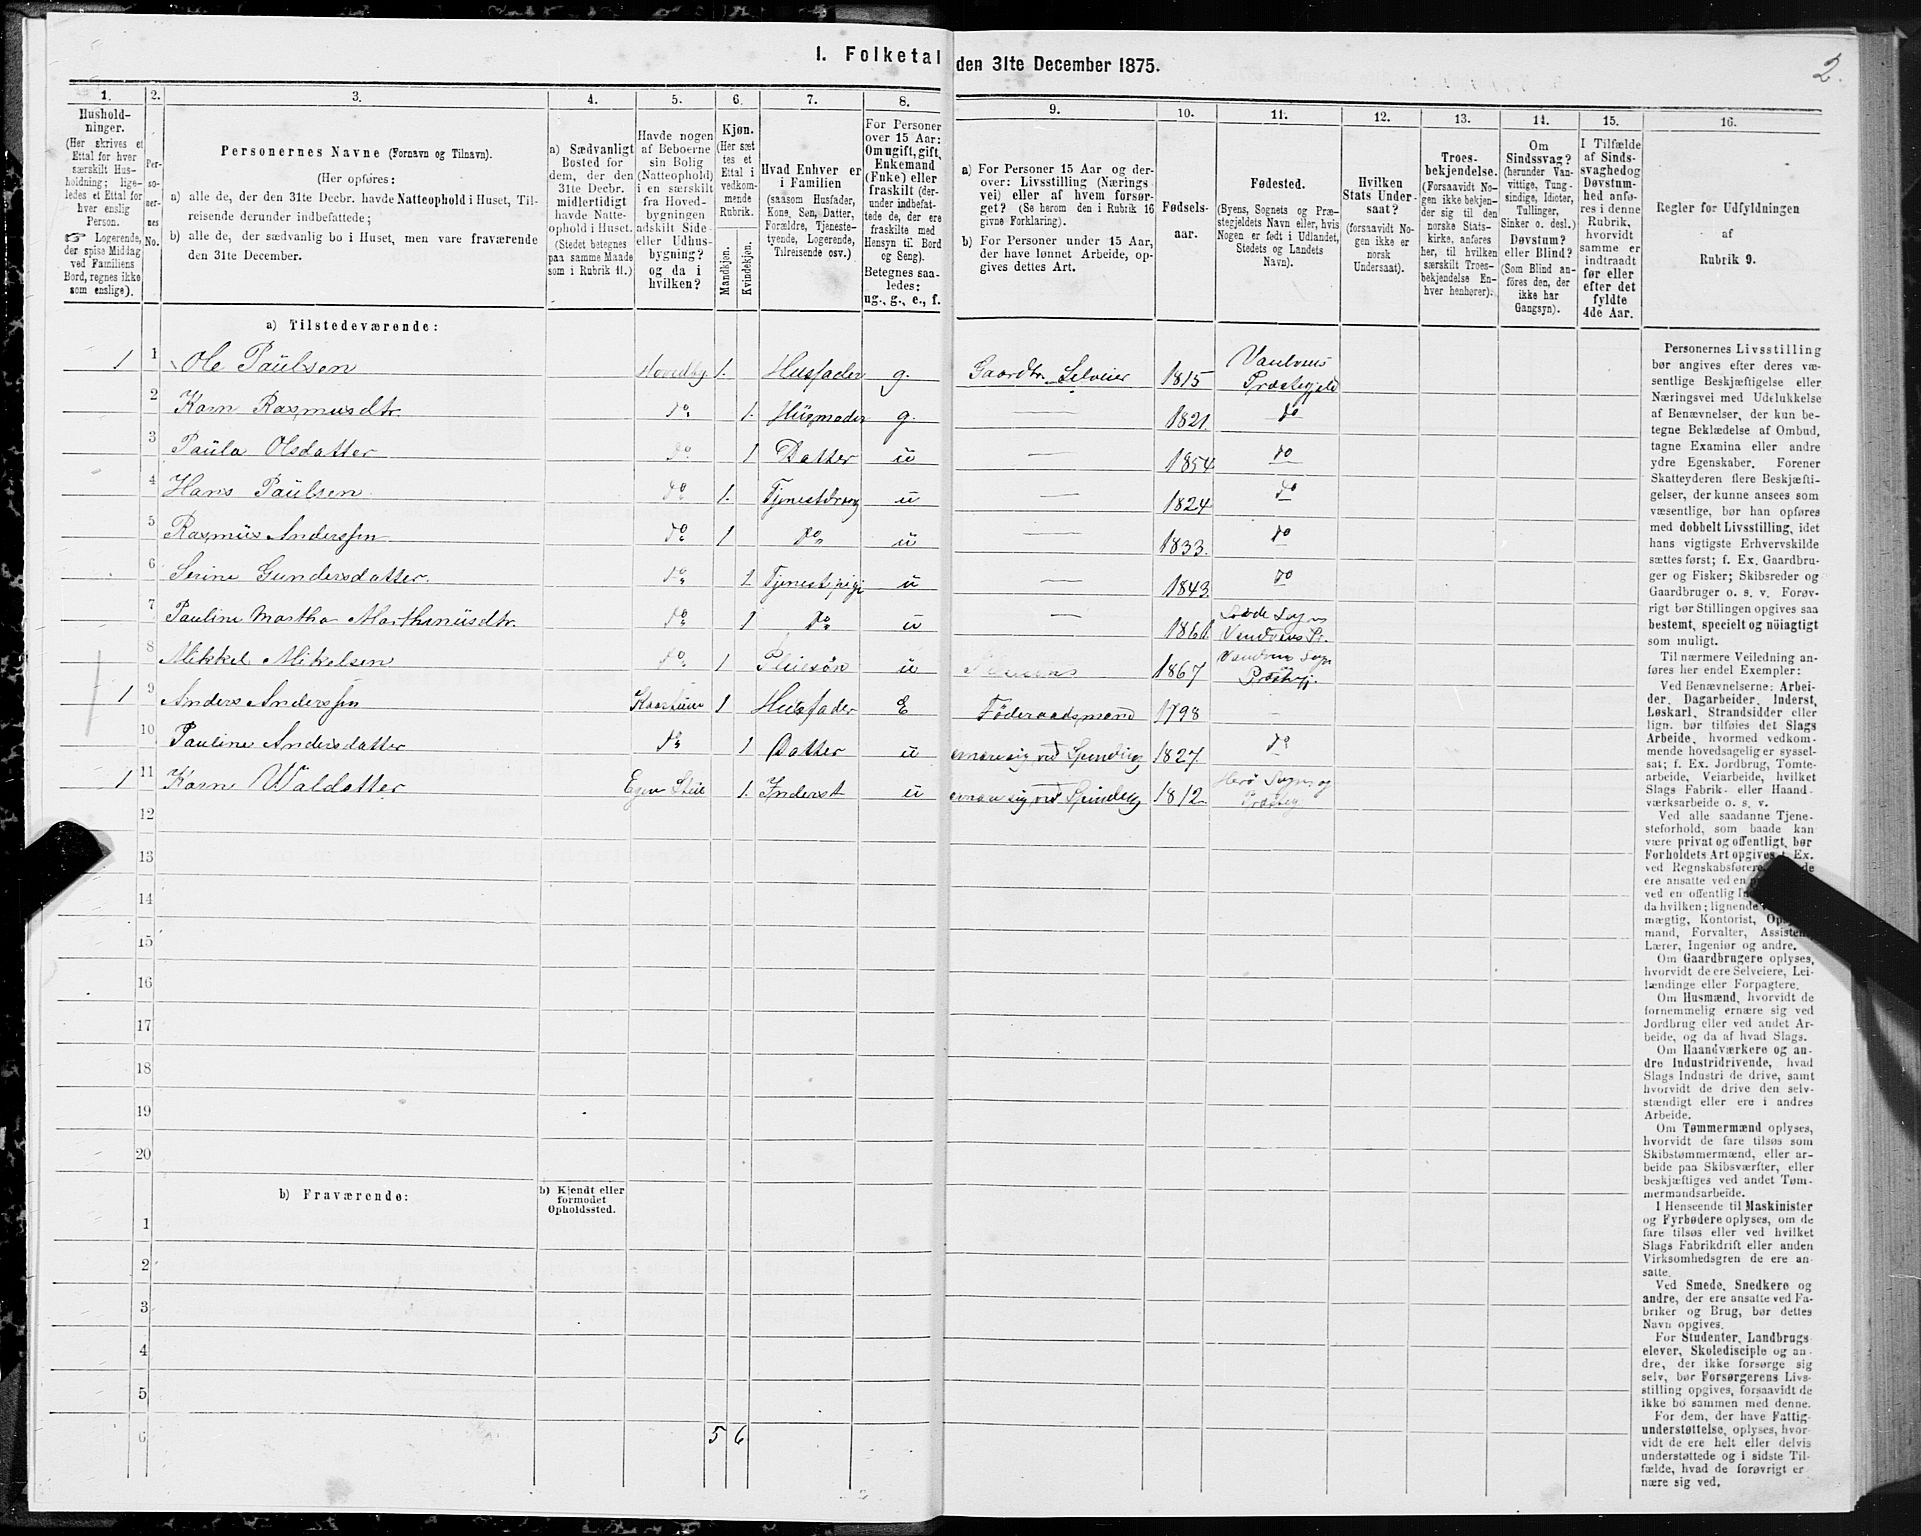 I. Folketal den 31te December 1875.
2.
1.
Hushold-
ninger.
(Her skrives et
Ettal for hver
særskilt Hus-
holdning; lige-
ledes et Ettal for
hver enslig
Person.
☞ Logerende,
der spise Middag
ved Familiens
Bord, regnes ikke
som enslige).
2.
Per-
so-
ner-
nes
No.
3.
Personernes Navne (Fornavn og Tilnavn).
(Her opføres:
a) alle de, der den 31te Decbr. havde Natteophold i Huset, Til-
reisende derunder indbefattede;
b) alle de, der sædvanlig bo i Huset, men vare fraværende
den 31te December.
4.
a) Sædvanligt
Bosted for
dem, der den
31te Decbr.
midlertidigt
havde Natte-
ophold i Huset.
(Stedet betegnes
paa samme Maade
som i Rubrik 11.)
5.
Havde nogen
af Beboerne
sin Bolig
(Natteophold)
i en særskilt
fra Hoved-
bygningen
adskilt Side-
eller Udhus-
bygning?
og da i
hvilken?
6.
Kjøn.
(Her sæt
tes et
Ettal i
vedkom-
mende
Rubrik.
Mandkjøn.
Kvindekjøn.
7.
Hvad Enhver er
i Familien
(saasom Husfader,
Kone, Søn, Datter,
Forældre, Tjeneste-
tyende, Logerende,
Tilreisende osv.)
8.
For Personer
over 15 Aar:
Om ugift, gift,
Enkemand
(Enke) eller
fraskilt (der-
under indbefat-
tede de, der ere
fraskilte med
Hensyn til Bord
og Seng).
Betegnes saa-
ledes:
ug., g., e., f.
9.
a) For Personer 15 Aar og der-
over: Livsstilling (Nærings
vei) eller af hvem forsør-
get? (Se herom den i Rubrik 16
givne Forklaring).
b) For Personer under 15 Aar,
der have lønnet Arbeide, op-
gives dettes Art.
10.
Fødsels-
aar.
11.
Fødested.
(Byens, Sognets og Præ-
stegjeldets Navn eller, hvis
Nogen er født i Udlandet,
Stedets og Landets
Navn).
12.
Hvilken
Stats Under-
saat?
(forsaavidt No-
gen ikke er
norsk
Undersaat).
13.
Troes-
bekjendelse.
(Forsaavidt No-
gen ikke bekjen-
der sig til den
norske Stats-
kirke, anføres
her, til hvilken
særskilt Troes-
bekjendelse En-
hver henhører).
14.
Om
Sindssvag?
(herunder Van-
vittige, Tung-
sindige, Idioter,
Tullinger,
Sinker o. desl.)
Døvstum?
eller Blind?
(Som Blind an-
føres den, der
ikke har
Gangsyn).
15.
I Tilfælde
af Sinds-
svaghed og
Døvstum-
hed anfø-
res i denne
Rubrik,
hvorvidt
samme er
indtraadt
før eller
efter det
fyldte
4de Aar.
16.
Regler for Udfyldningen
af
Rubrik 9.
a) Tilstedeværende:
1 1 Ole Paulsen Hovedby. 1. Husfader g. Gaardbr. Selveier 1815 Præstegjeld
2 Karn Rasmusdtr. do 1. Husmoder g. — 1821. do
3 Paula Olsdatter do 1 Datter u — 1854. do
4 Hans Paulsen do 1. u — 1824 do
5 Rasmus Anderssen do 1 do u — 1833. do
6 Serine Gundersdatter. do 1. u — 1843. do
7 Pauline Martha Marthinusdtr. do 1 do u — 1861.
8 Mikkel Mikelsen do 1 Pleiesøn u 1867
1 9 Anders Anderssen 1 Husfader E Føderaadsmand 1798 —
10 Pauline Andersdatter do 1 Datter u 1827. do
1 11 Karn Woldatter 1. Inderst u 1812. Herø Sogn og Præsteg.
12
13
14
15
16
17
18
19
20
b) Fraværende:
b) Kjendt eller
formodet
Opholdssted.
1
2
3
4
5
6
5 6
Personernes Livsstilling
bør angives efter deres væ-
sentlige Beskjæftigelse eller
Næringsvei med Udelukkelse
af Benævnelser, der kun be-
tegne Beklædelse af Ombud,
tagne Examina eller andre
ydre Egenskaber. Forener
Skatteyderen flere Beskjæfti-
gelser, der kunne ansees som
væsentlige, bør han opføres
med dobbelt Livsstilling, idet
hans vigtigste Erhvervskilde
sættes først; f. Ex. Gaardbru-
ger og Fisker; Skibsreder og
Gaardbruger o. s. v. Forøv-
rigt bør Stillingen opgives saa
bestemt, specielt og nöiagtigt
som muligt.
Til nærmere Veiledning an-
føres her endel Exempler:
Ved Benævnelserne: Arbei-
der, Dagarbeider, Inderst,
Løskarl, Strandsidder eller
lign. bør tilføies det Slags
Arbeide, hvormed vedkom-
mende hovedsagelig er syssel-
sat; f. Ex. Jordbrug, Tomte-
arbeide, Veiarbeide, hvilket
Slags Fabrik- eller Haand-
værksarbeide o. s. v.
Ved alle saadanne Tjene-
steforhold, som baade kan
være privat og offentligt, bør
Forholdets Art opgives, f. Ex.
ved Regnskabsførere,
ere ansatte ved en
ved en offentlig
da hvilken; lignende
mægtig, Kontorist,
mand, Forvalter,
Lærer, Ingeniør og andre.
Om Gaardbrugere oplyses,
hvorvidt de ere Selveiere, Lei-
lændinge eller Forpagtere.
Om Husmænd, hvorvidt de
fornemmelig ernære sig ved
Jordbrug eller ved andet Ar-
beide, og da af hvad Slags.
Om Haandværkere og an-
dre Industridrivende, hvad
Slags Industri de drive, samt
hvorvidt de drive den selv-
stændigt eller ere i andres
Arbeide.
Om Tømmermænd oplyses,
hvorvidt de fare tilsøs som
Skibstømmermænd, eller ar-
beide paa Skibsværfter, eller
beskjæftiges ved andet Tøm-
mermandsarbeide.
I Henseende til Maskinister
og Fyrbødere oplyses, om de
fare tilsøs eller ved hvilket
Slags Fabrikdrift eller anden
Virksomhedsgren de ere an-
satte.
Ved Smede, Snedkere og
andre, der ere ansatte ved Fa-
briker og Brug, bør dettes
Navn opgives.
For Studenter, Landbrugs-
elever, Skoledisciple og an-
dre, der ikke forsørge sig
selv, bør Forsørgerens Livs-
stilling opgives, forsaavidt de
ikke bo sammen med denne.
For dem, der have Fattig-
understøttelse, oplyses, hvor-
vidt de ere helt eller delvis
understøttede og i sidste Til-
fælde, hvad de forøvrigt er-
nære sig ved.